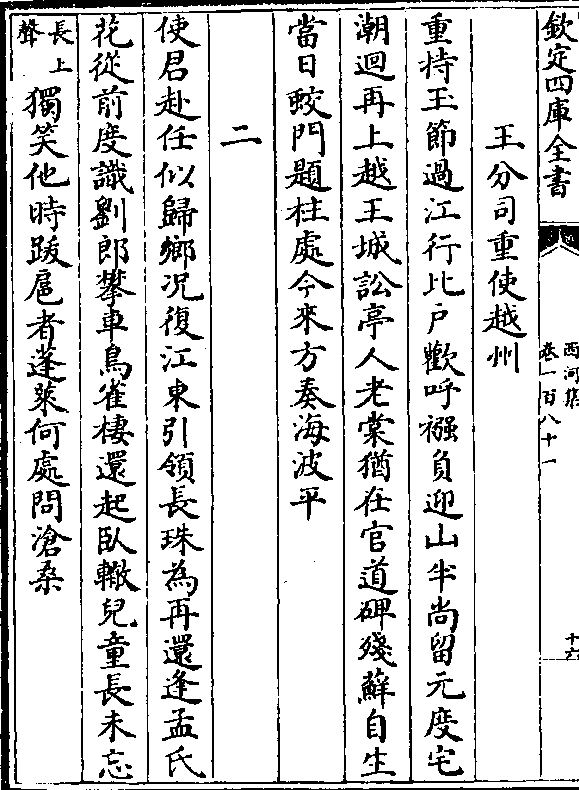 欽定四庫全書
西河集
卷一百八十一
十六
王分司重使越州
重持玉節過江行比户歡呼襁負迎山半尚留元度宅
潮迴再上越王城訟亭人老棠猶在官道碑殘蘚自生
當日鮫門題柱處今來方奏海波平
二
使君赴任似歸鄉况復江東引領長珠為再還逢孟氏
花從前度識劉郎攀車鳥雀棲還起卧轍兒童長未忘
長上聲獨笑他時跋扈者蓬萊何處問滄桑